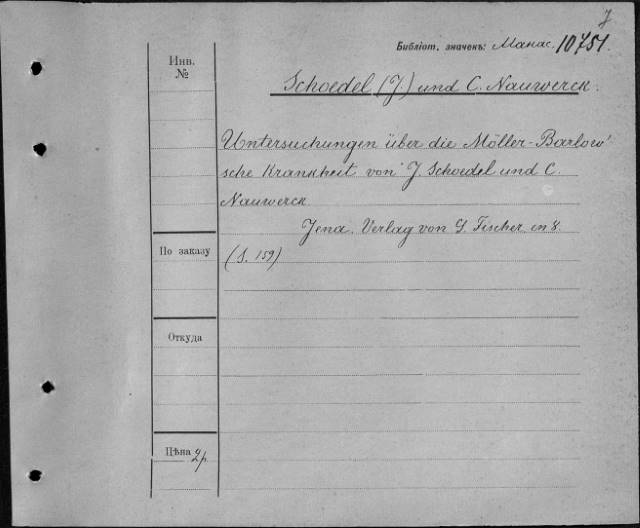 7
Библіот. значекъ: Манас. 10751.
Инв. №
Schoedel (J.) und C. Nauwerck.
Untersuchungen über die Möller-Barlow'
sche Krankheit von J. Schoedel und C.
Nauwerck.
Jena. Verlag von G. Fischer. in 8.
По заказу
(S. 159)
Откуда
Цѣна 2р